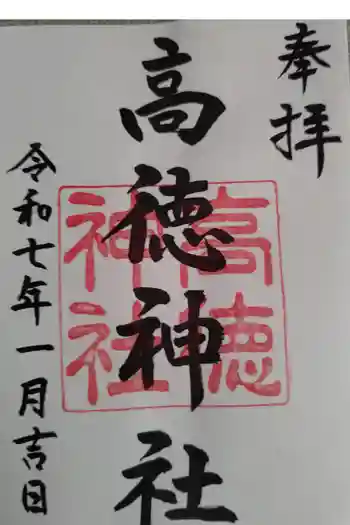 奉拝
高徳神社
高徳
神社
令和七年一月吉日